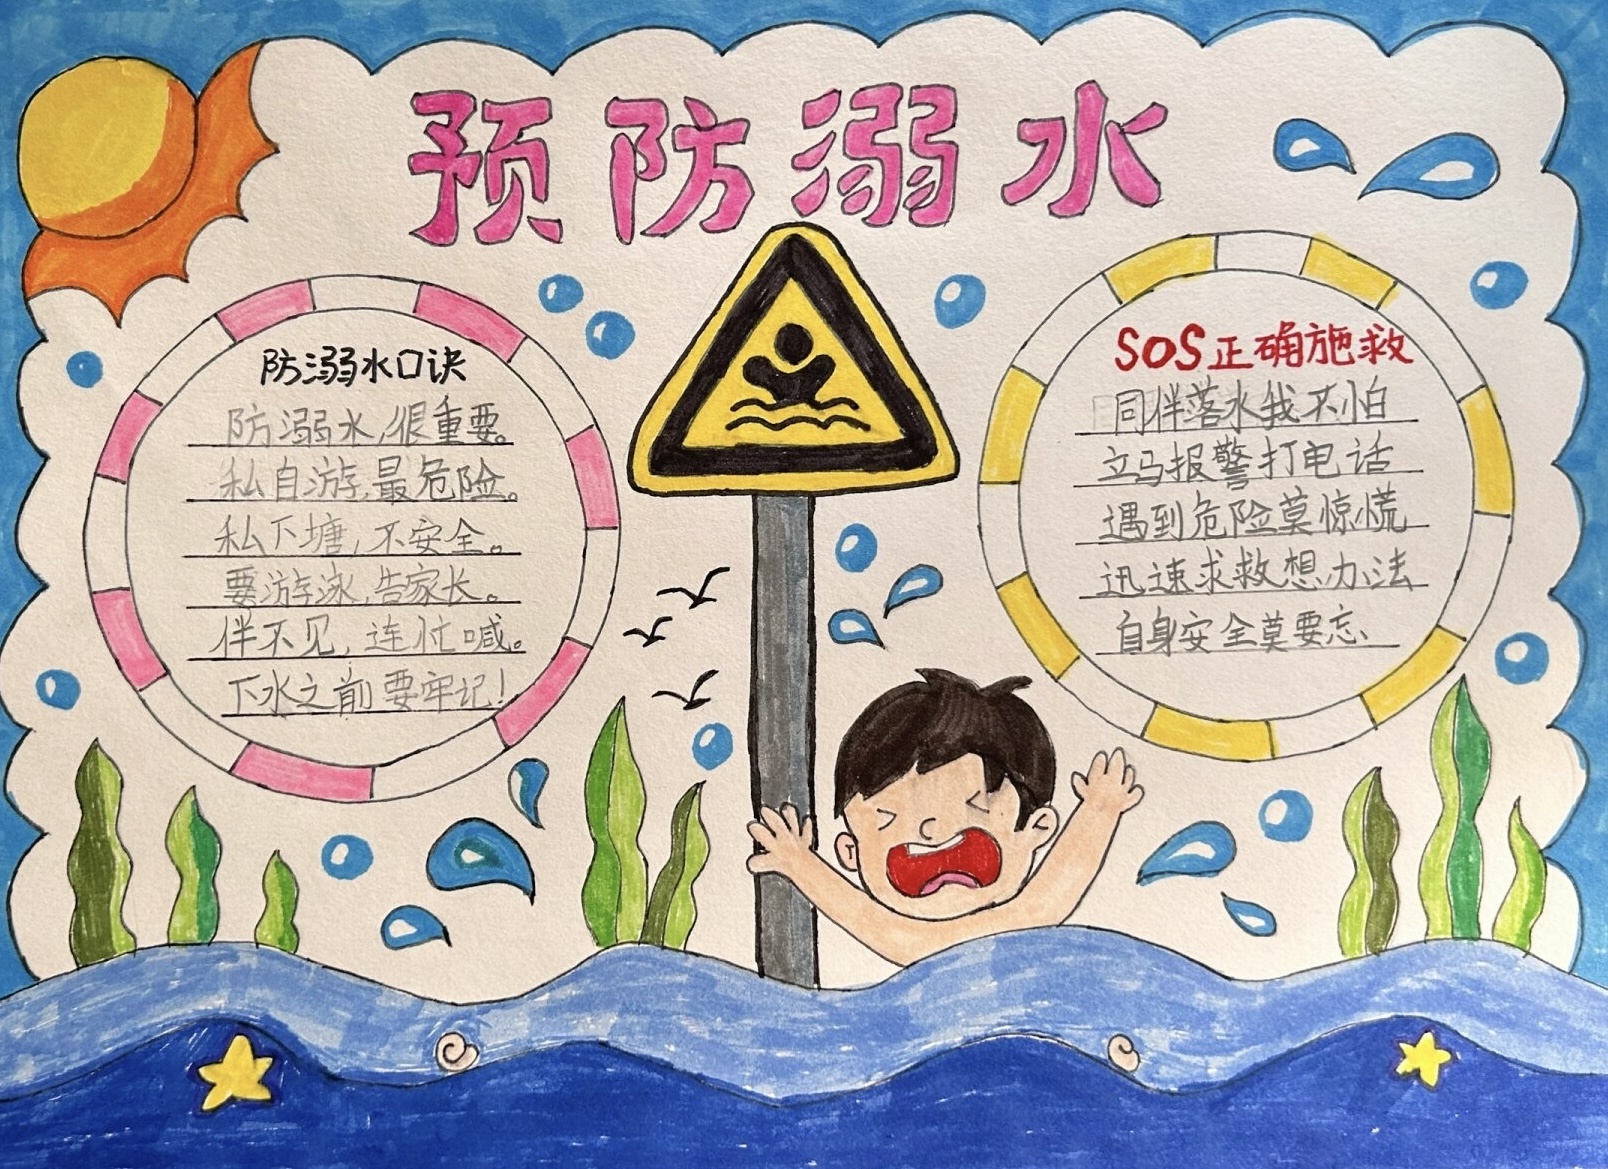 预防溺水
防溺水口诀
防溺水,很重要。
私自游,最危险。
私下塘,不安全。
要游泳,告家长。
伴不见,连忙喊。
下水之前要牢记!
SOS正确施救
同伴落水我不怕
立马报警打电话
遇到危险莫惊慌
迅速求救想办法
自身安全莫要忘